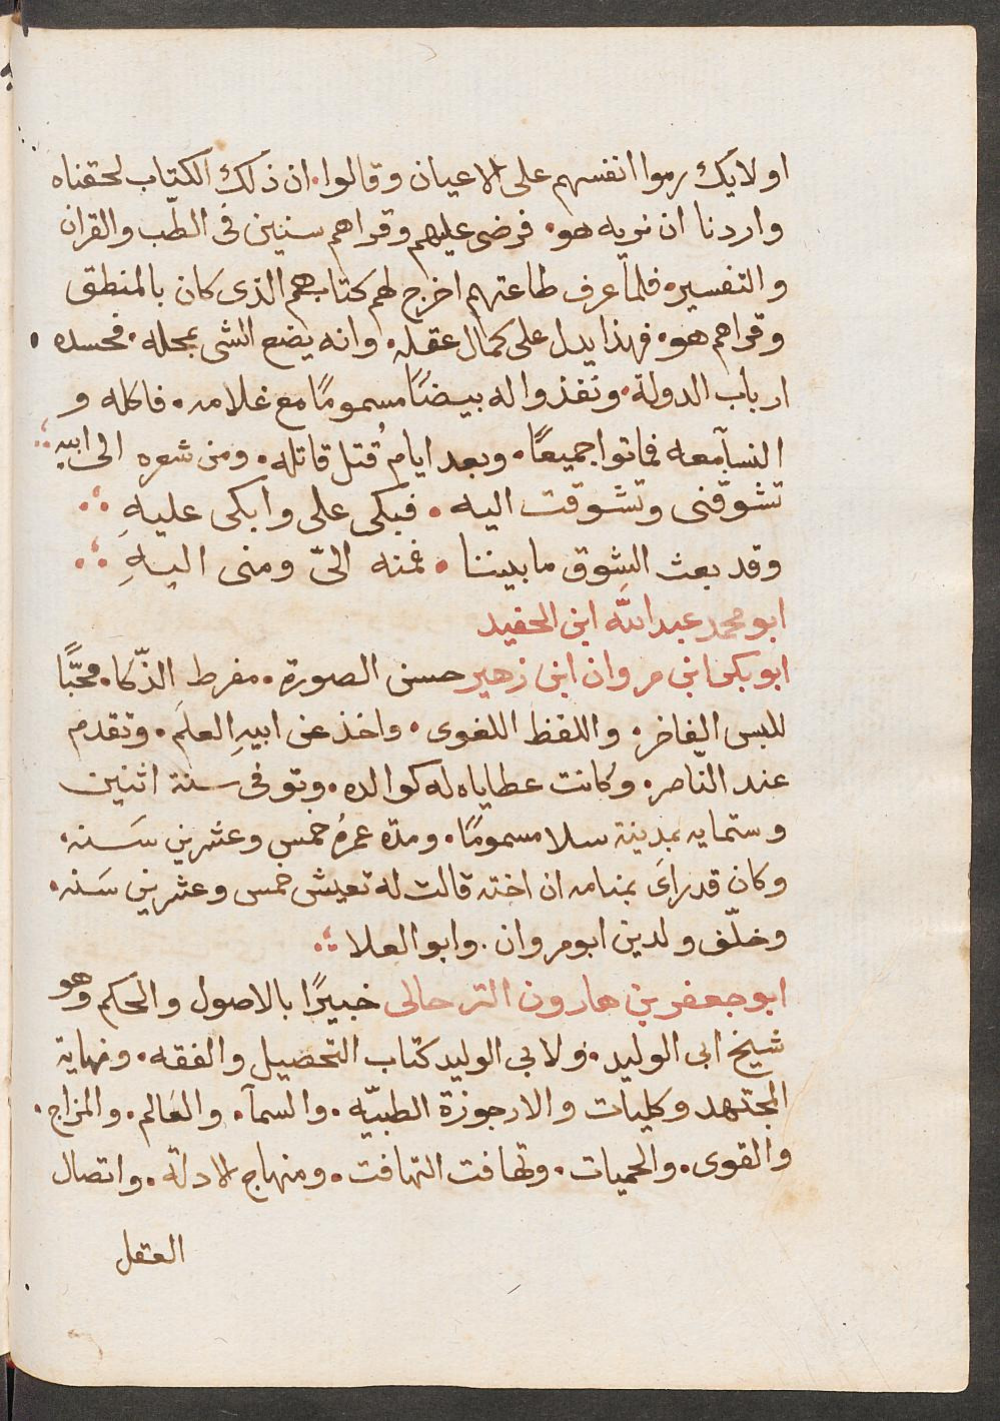 اولايك رموا انفسهم على الاعيان وقالوا. ان ذلك الكتاب لحقناه
واردنا ان نريه هو. فرضى عليهم وقراهم سنين فى الطّب والقران
والتفسير. فلمّا عرف طاعتهم اخرج لهم كتابهم الذى كان بالمنطق
وقراهم هو. فهذا يدل على كمال عقله. وانه يضع الشى بمحله. فحسده .
ارباب الدولة. ونفذوا له بيضًا مسمومًا مع غلامه. فاكله و
النسآ معه فماتوا جميعًا. وبعد ايام قُتل قاتله. ومن شعره الى ابيه
تشوقّنى وتشوقت اليه . فبكى على وابكى عليهِ
وقد بعث الشوق ما بيننا . فمنه الىّ ومنى اليهِ
ابو محمد عبد الله ابن الحفيد
ابو بكر ابن مروان ابن زهير حسن الصورة. مفرط الذّكا. محبًّا
للبس الفاخر. واللفظ اللغوى. واخذ عن ابيهِ العلم. وتقدم
عند النّاصر. وكانت عطاياه له كوالده. وتوفى سنة اثنين
وستمايه بمدينة سلا مسمومًا. ومدّه عمرهُ خمس وعشرين سَنه.
وكان قد راىَ بمنامه ان اخته قالت له تعيش خمس وعشرين سَنه.
وخلّف ولدين ابو مروان. وابو العلا
ابو جعفر بن هارون الترحالى خبيرًا بالاصول والحكم وهو
شيخ ابى الوليد. ولابي الوليد كتاب التحصيل والفقه. ونهاية
المجتهد وكليات والارجوزة الطبيّه. والسمآ. والعَالم. والمزاج.
والقوى. والحميات. وتهافت التهافت. ومنهاج الادلّه. واتصال
العقل